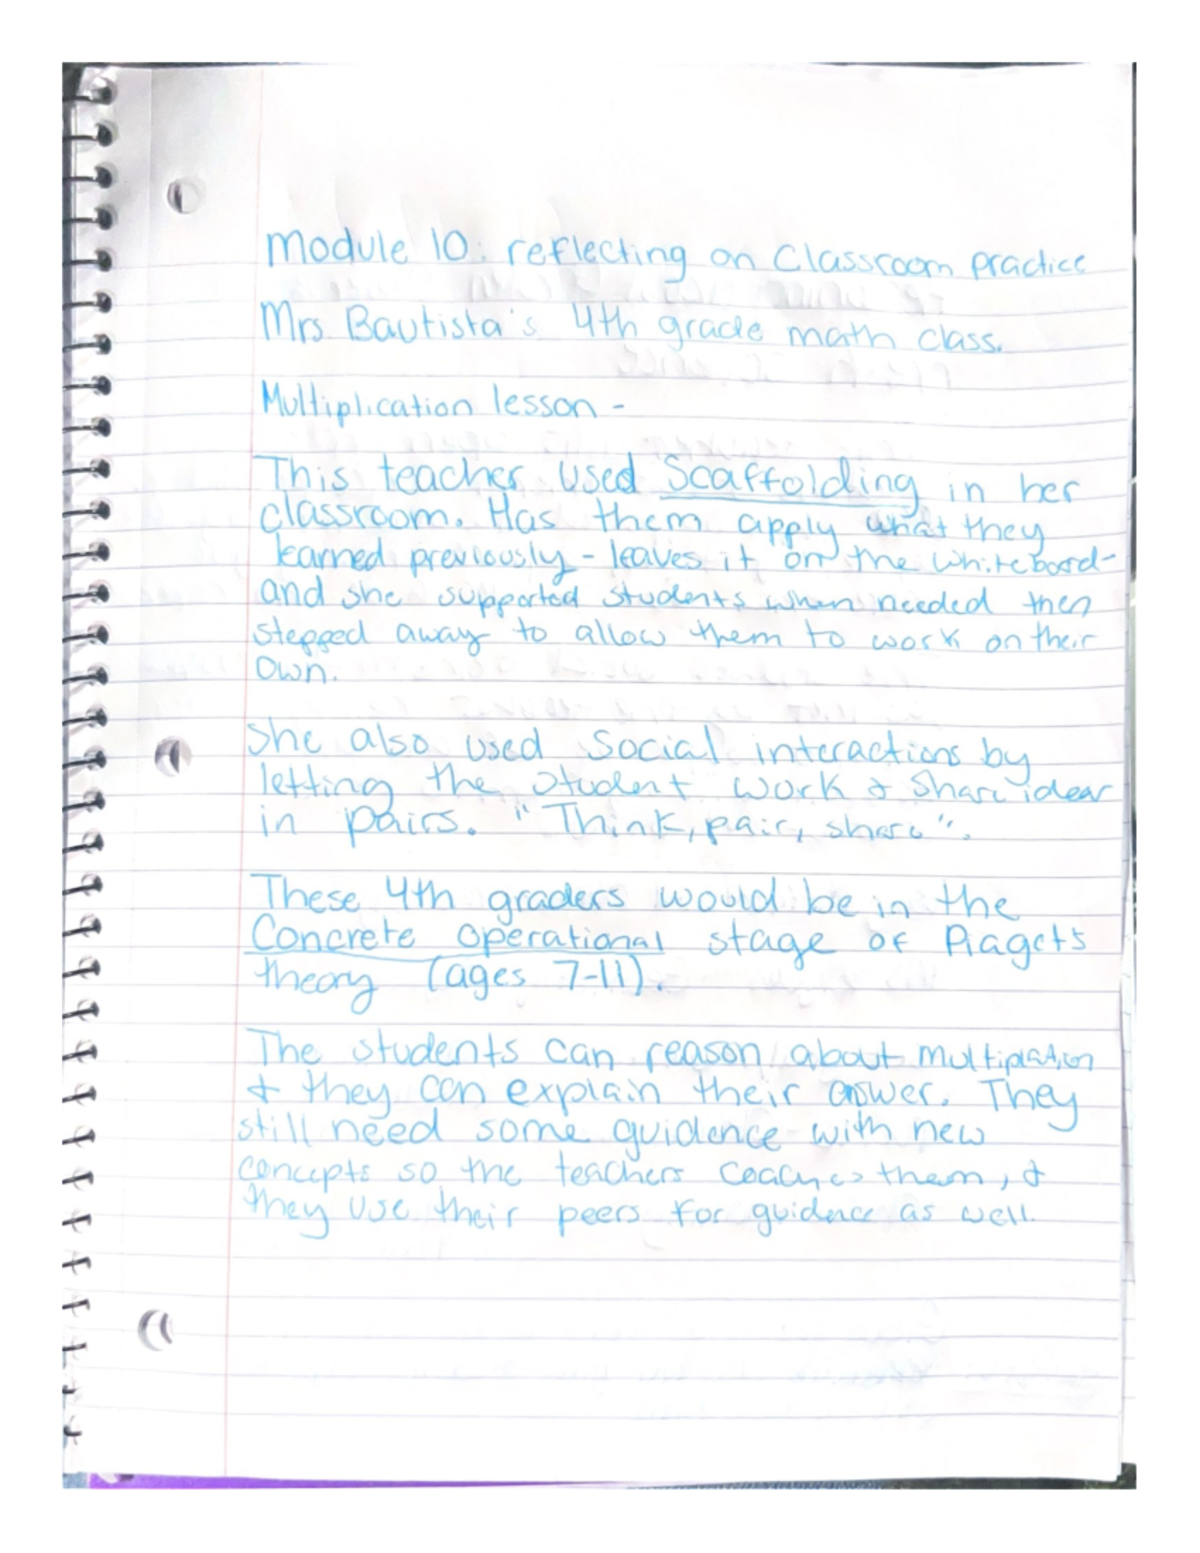 Module 10: reflecting on Classroom practice
Mrs Bautista's 4th grade math class.
Multiplication lesson -
This teacher used Scaffolding in her
classroom. Has them apply what they
learned previously - leaves it on the whiteboard -
and she supported students when needed then
stepped away to allow them to work on their
own.
She also used Social interactions by
letting the student work & share ideas
in pairs. "Think, pair, share".
These 4th graders would be in the
Concrete operational stage of Piagets
theory (ages 7-11).
The students can reason about multiplation
& they can explain their answer. They
still need some guidence with new
concepts so the teachers coaches them, &
they use their peers for guidence as well.